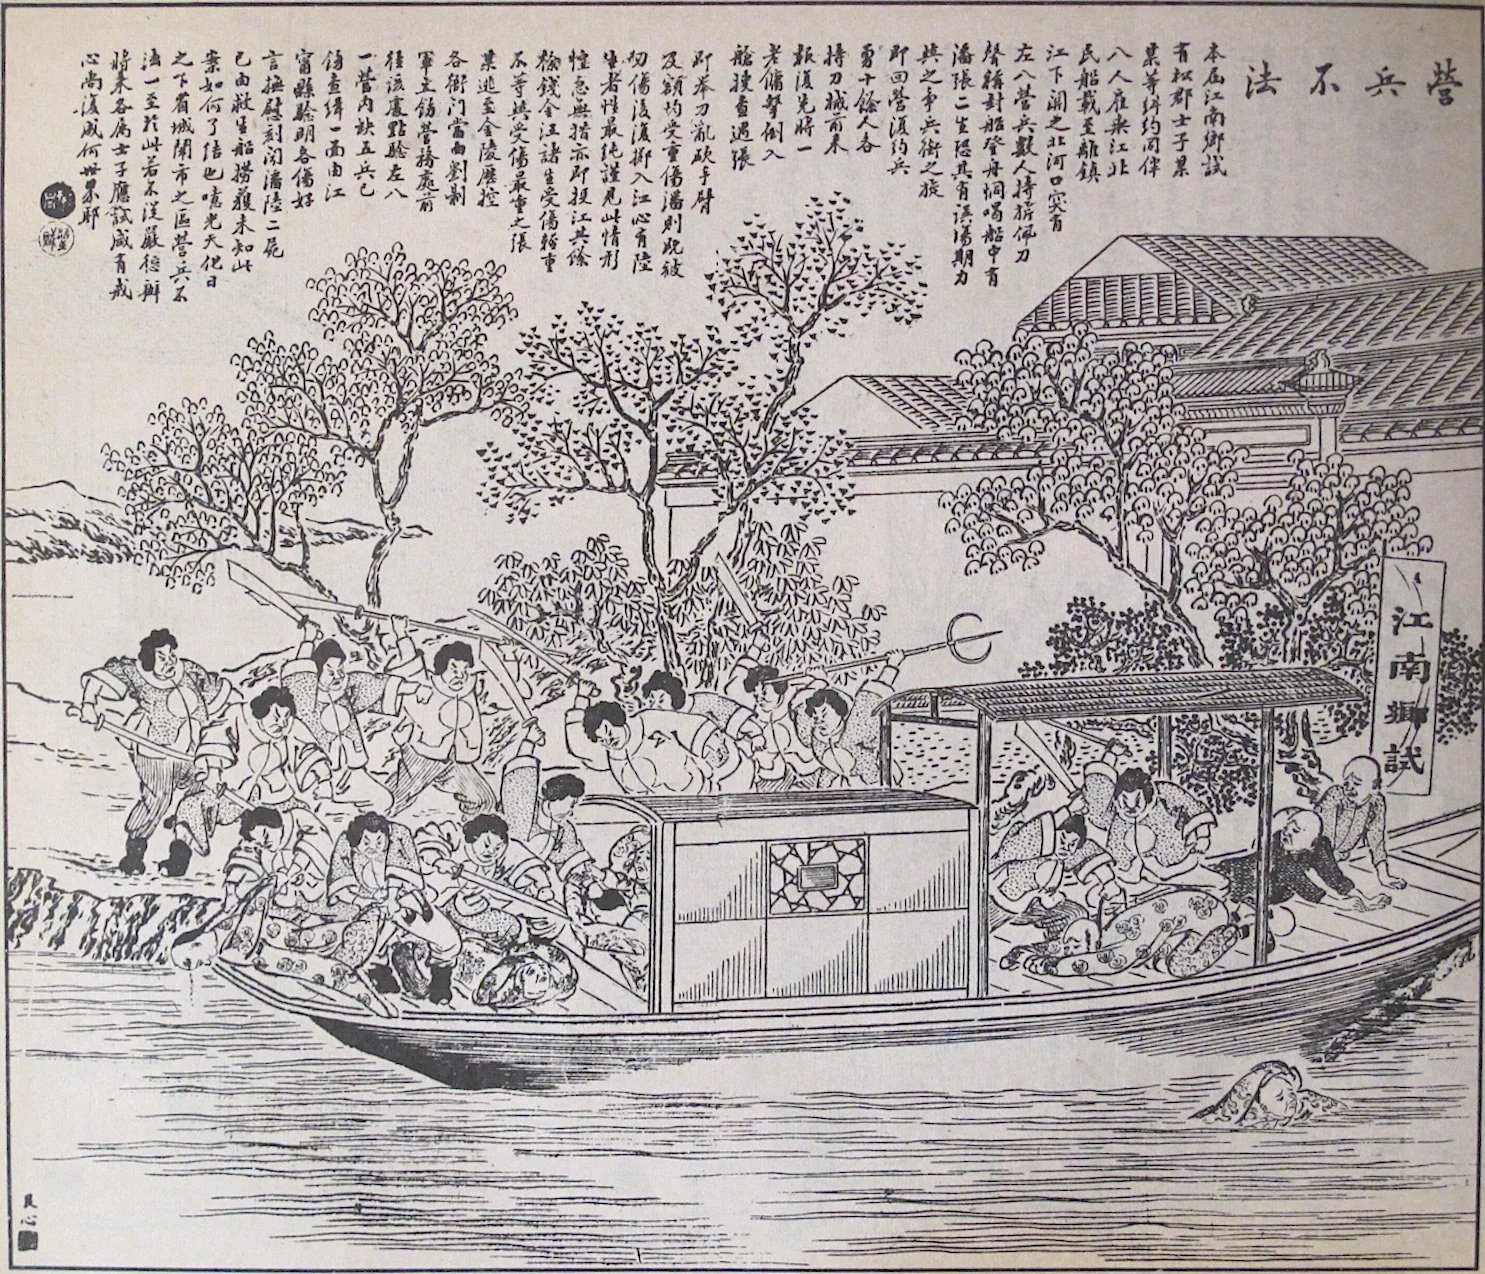 營兵不法
本屆江南鄉試
有松郡士子某
某等糾約同伴
八人雇乘江北
民船載至離鎮
江下關之北河口突有
左八營兵數人持旂佩刀
聲稱封船登舟恫喝船中有
潘張二生恐其有誤場期力
與之爭兵銜之旋
即回營復約兵
勇十餘人各
持刀械前來
報復先將一
老傭擊倒入
艙搜查遇張
即舉刀亂砍手臂
及額均受重傷潘則既被
刃傷後復擲入江心有陸
生者性最純謹見此情形
惶急無措亦即投江其餘
徐錢金江諸生受傷輕重
不等與受傷最重之張
某逃至金陵歷控
各衙門當由劉制
軍立飭營務處前
往該處點驗左八
一營內缺五兵已
飭查緝一面由江
甯縣驗明各傷好
言撫慰刻聞潘陸二屍
已由救生船撈獲未知此
案如何了結也噫光天化日
之下省城鬧市之區營兵不
法一至於此若不從嚴懲辦
將來各屬士子應試咸有戒
心尚復成何世界耶
江南鄉試
艮心